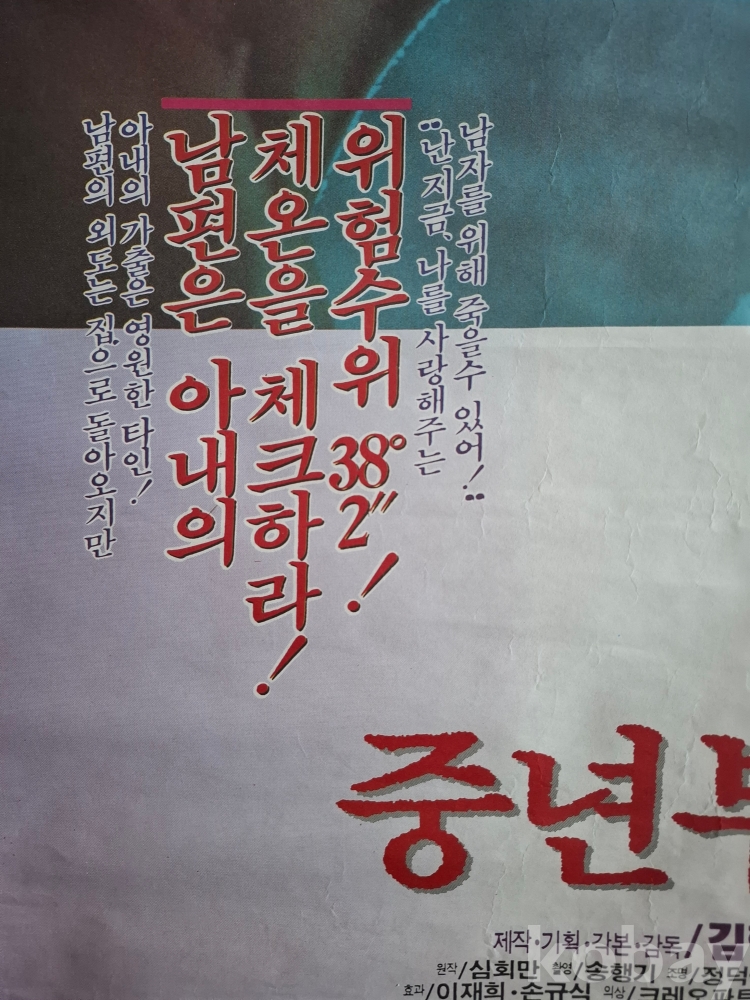 남편의 외도는 집으로 돌아오지만
아내의 가출은 영원한 타인!
남편은 아내의
체온을 체크하라!
위험수위 38° 2″!
"난 지금, 나를 사랑해주는
남자를 위해 죽을수 있어!"
중년
제작·기획·각본·감독/김
원작/심회만 촬영/송행기 조명/정덕
효과/이재희·손규식 의상/크레오파